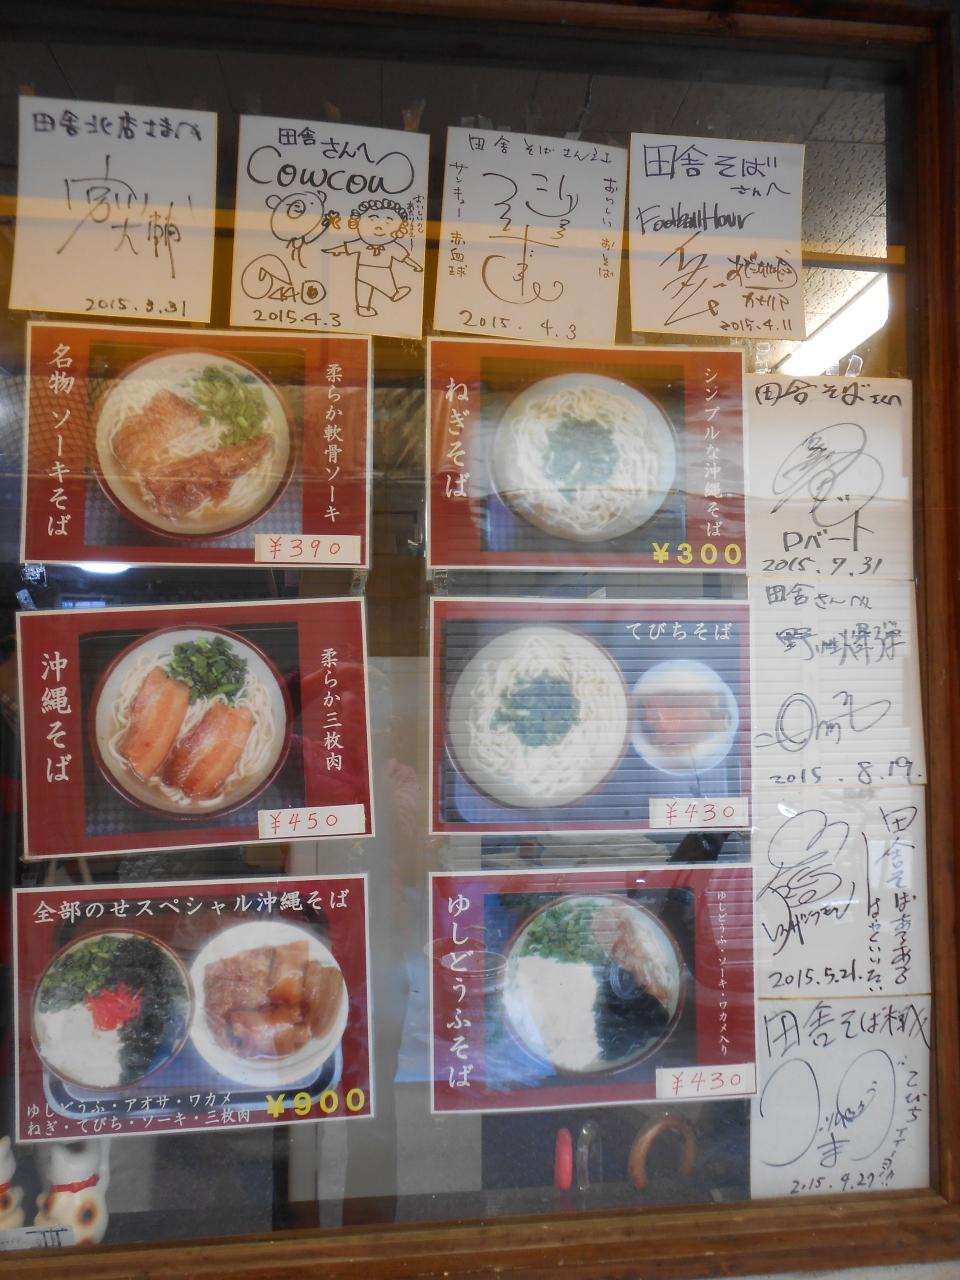 田舎北店さまへ
宮川
大輔
2015.3.31
田舎さんへ
COWCOW
2015.4.3
田舎そばさん江
おいしいおそば
サンキュー赤血球
2015.4.3
田舎そば
さんへ
Football Hour
2015.4.11
名物ソーキそば
柔らか軟骨ソーキ
¥390
ねぎそば
シンプルな沖縄そば
¥300
田舎そばさんへ
Pバート
2015.7.31
沖縄そば
柔らか三枚肉
¥450
てびちそば
¥430
田舎さんへ
野性爆弾
2015.8.19.
田舎そばあるある
はやくいいたい
2015.5.21.
全部のせスペシャル沖縄そば
ゆしどうふ・アオサ・ワカメ
ねぎ・てびち・ソーキ・三枚肉
¥900
ゆしどうふそば
ゆしどうふ・ソーキ・ワカメ入り
¥430
田舎そば様
てびち
2015.9.27